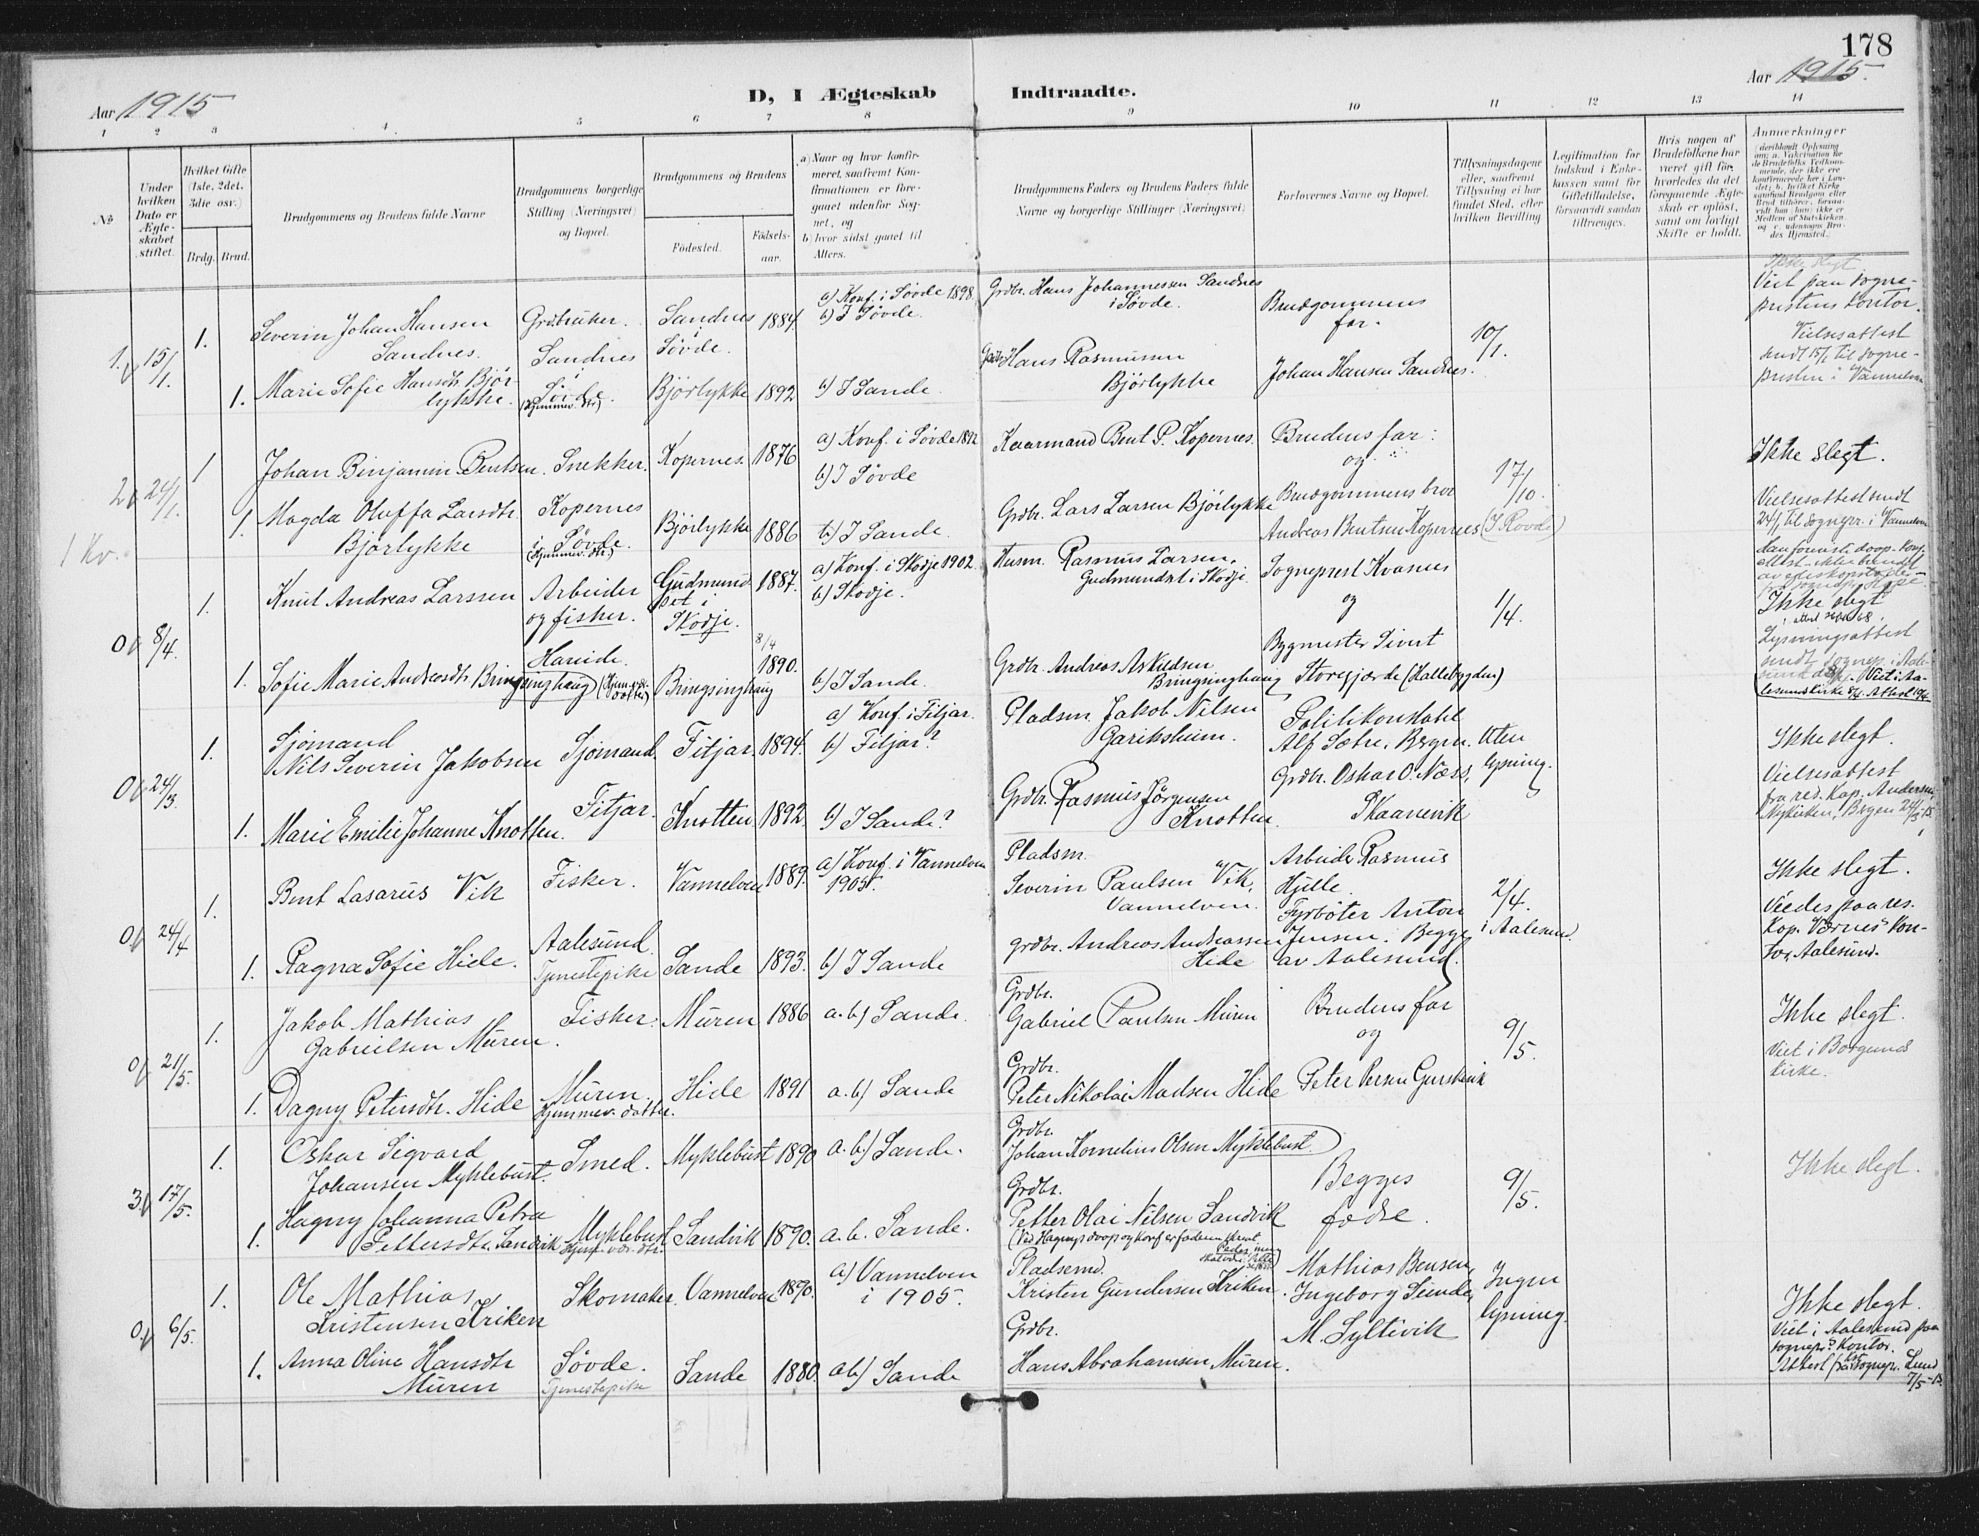 178
Aar 1915
D, I Ægteskab Indtraadte.
Aar 1915.
1 2 3 4 5 6 7 8 9 10 11 12 13 14
No
Under hvilken Dato er Ægteskabet stiftet.
Hvilket Gifte (1ste, 2det, 3die osv.)
Brdg. Brud.
Brudgommens og Brudens fulde Navne
Brudgommens borgerlige Stilling (Næringsvei) og Bopæl.
Brudgommens og Brudens
Fødested. Fødsels-aar.
a) Naar og hvor konfirmeret, saafremt Konfirmationen er foregaaet udenfor Sognet, og
b) hvor sidst gaaet til Alters.
Brudgommens Faders og Brudens Faders fulde Navne og borgerlige Stillinger (Næringsvei)
Forlovernes Navne og Bopæl.
Tillysningsdagene eller, saafremt Tillysning ei har fundet Sted, efter hvilken Bevilling
Legitimation for Indskud i Enkekassen samt for Giftetilladelse, forsaavidt saadan tiltrænges.
Hvis nogen af Brudefolkene har været gift før, hvorledes da det foregaaende Ægteskab er opløst, samt om lovligt Skifte er holdt.
Anmerkninger
1. 15/1. 1. Severin Johan Hansen Sandnes. Grdbruker. Sandnes i Søvde. Sandnes i Søvde. 1884. a) Konf. i Søvde 1898. b) I Søvde. Grdbr. Hans Johannessen Sandnes i Søvde. Brudgommens far. 10/1. Ikke slegt Viet paa sogneprestens kontor.
1. Marie Sofie Hansdtr. Bjørlykke. (Hjemmev. dtr.) Bjørlykke 1892 b) I Sande. Grdbr. Hans Rasmussen Bjørlykke Johan Hansen Sandnes. Vielsesattest sendt 15/1 til sognepresten i Vannelven
2. 24/1. 1 Johan Binjamin Bentsen. Snekker. Kopernes i Søvde. Kopernes. 1876 a) Konf. i Søvde 1892 b) I Søvde Kaarmand Bent P. Kopernes. Brudens far og 17/10. Ikke slegt.
1. Magda Oluffa Larsdtr. Bjørlykke (Hjemmev. dtr.) Bjørlykke 1886 b) I Sande. Grdbr. Lars Larsen Bjørlykke Brudgommens bror Andreas Bentsen Kopernes (I Rovde) Vielsesattest sendt 24/1 til sognepr. i Vannelven
1 Kv.
0 8/4. 1. Knut Andreas Larssen Arbeider og fisher. Hareide. Gudmundset i Skodje. 1887. a) Konf. i Skodje 1902. b) Skodje. Husm. Rasmus Larsen, Gudmundset i Skodje. Sogneprest Kvasnes og 1/4. Ikke slegt
1. Sofie Marie Andreasdtr. Bringsinghaug (Hjemmev. datter) Bringsinghaug 8/4 1890. b) I Sande. Grdbr. Andreas Askildsen Bringsinghaug Bygmester Sivert Storegjærde (Hallebygden) Lysningsattest sendt sognepr. i Aalesund Viet i Aalesunds kirke 8/4.
0 24/3. 1. Sjømand Nils Severin Jakobsen Sjømand. Fitjar. Fitjar. 1894. a) Konf. i Fitjar. b) Fitjar? Pladsm. Jakob Nilsen Politikonstabel Alf Sætre, Bergen. Uten lysning. Ikke slegt.
1. Marie Emilie Johanne Knotten. Knotten 1892. b) I Sande? Grdbr. Rasmus Jørgensen Knotten. Grdbr. Oskar O. Næss, Skaanevik Vielsesattest fra res. Kap. Andersen Nykirken, Bergen 24/3-15.
0 24/4 1. Bent Lasarus Vik Fisker. Aalesund. Vannelven 1889. a) Konf. i Vannelven 1905. Pladsm. Severin Paulsen Vik, Vannelven. Arbeider Rasmus Hjelle. 2/4. i Aalesund. Ikke slegt.
1. Ragna Sofie Hide. Tjenestepike Sande 1893. b) I Sande Grdbr. Andreas Andreassen Hide Fyrbøter Anton Jensen. Begge av Aalesund. Viedes paa res. Kap. Værnes' kontor, Aalesund.
0 21/5. 1. Jakob Mathias Gabrielsen Muren. Fisker. Muren. Muren 1886 a. b) Sande. Grdbr. Gabriel Paulsen Muren Brudens far og 9/5. Ikke slegt.
1. Dagny Petersdtr. Hide Hjemmev. datter. Hide 1891 a. b) Sande Grdbr. Peter Nikolai Madsen Hide Peter Persen Gurskevik Viet i Borgunds kirke.
3. 17/5. 1. Oskar Sigvard Johansen Myklebust. Smed. Myklebust Myklebust 1890 a. b) Sande. Grdbr. Johan Kornelius Olsen Myklebust. Begges fædre. 9/5. Ikke slegt.
1. Hagny Johanna Petra Pettersdtr. Sandvik Hjemmev. dtr. Sandvik 1890. a. b. Sande. Grdbr. Petter Olai Nilsen Sandvik
0 6/5. 1. Ole Mathias Kristensen Kriken Skomaker. Søvde. Vannelven 1890. a) Vannelven i 1905. Pladsemd. Kristen Gundersen Kriken. Mathias Bensen, Ingen lysning. Ikke slegt.
1. Anna Oline Hansdtr Muren Tjenestepike Sande 1880. a b) Sande Grdbr. Hans Abrahamsen Muren. Ingeborg Sunde, M. Syltevik Viet i Aalesund paa sognepr.s Kontor. Attest fra sognepr. Lund 7/5-15.